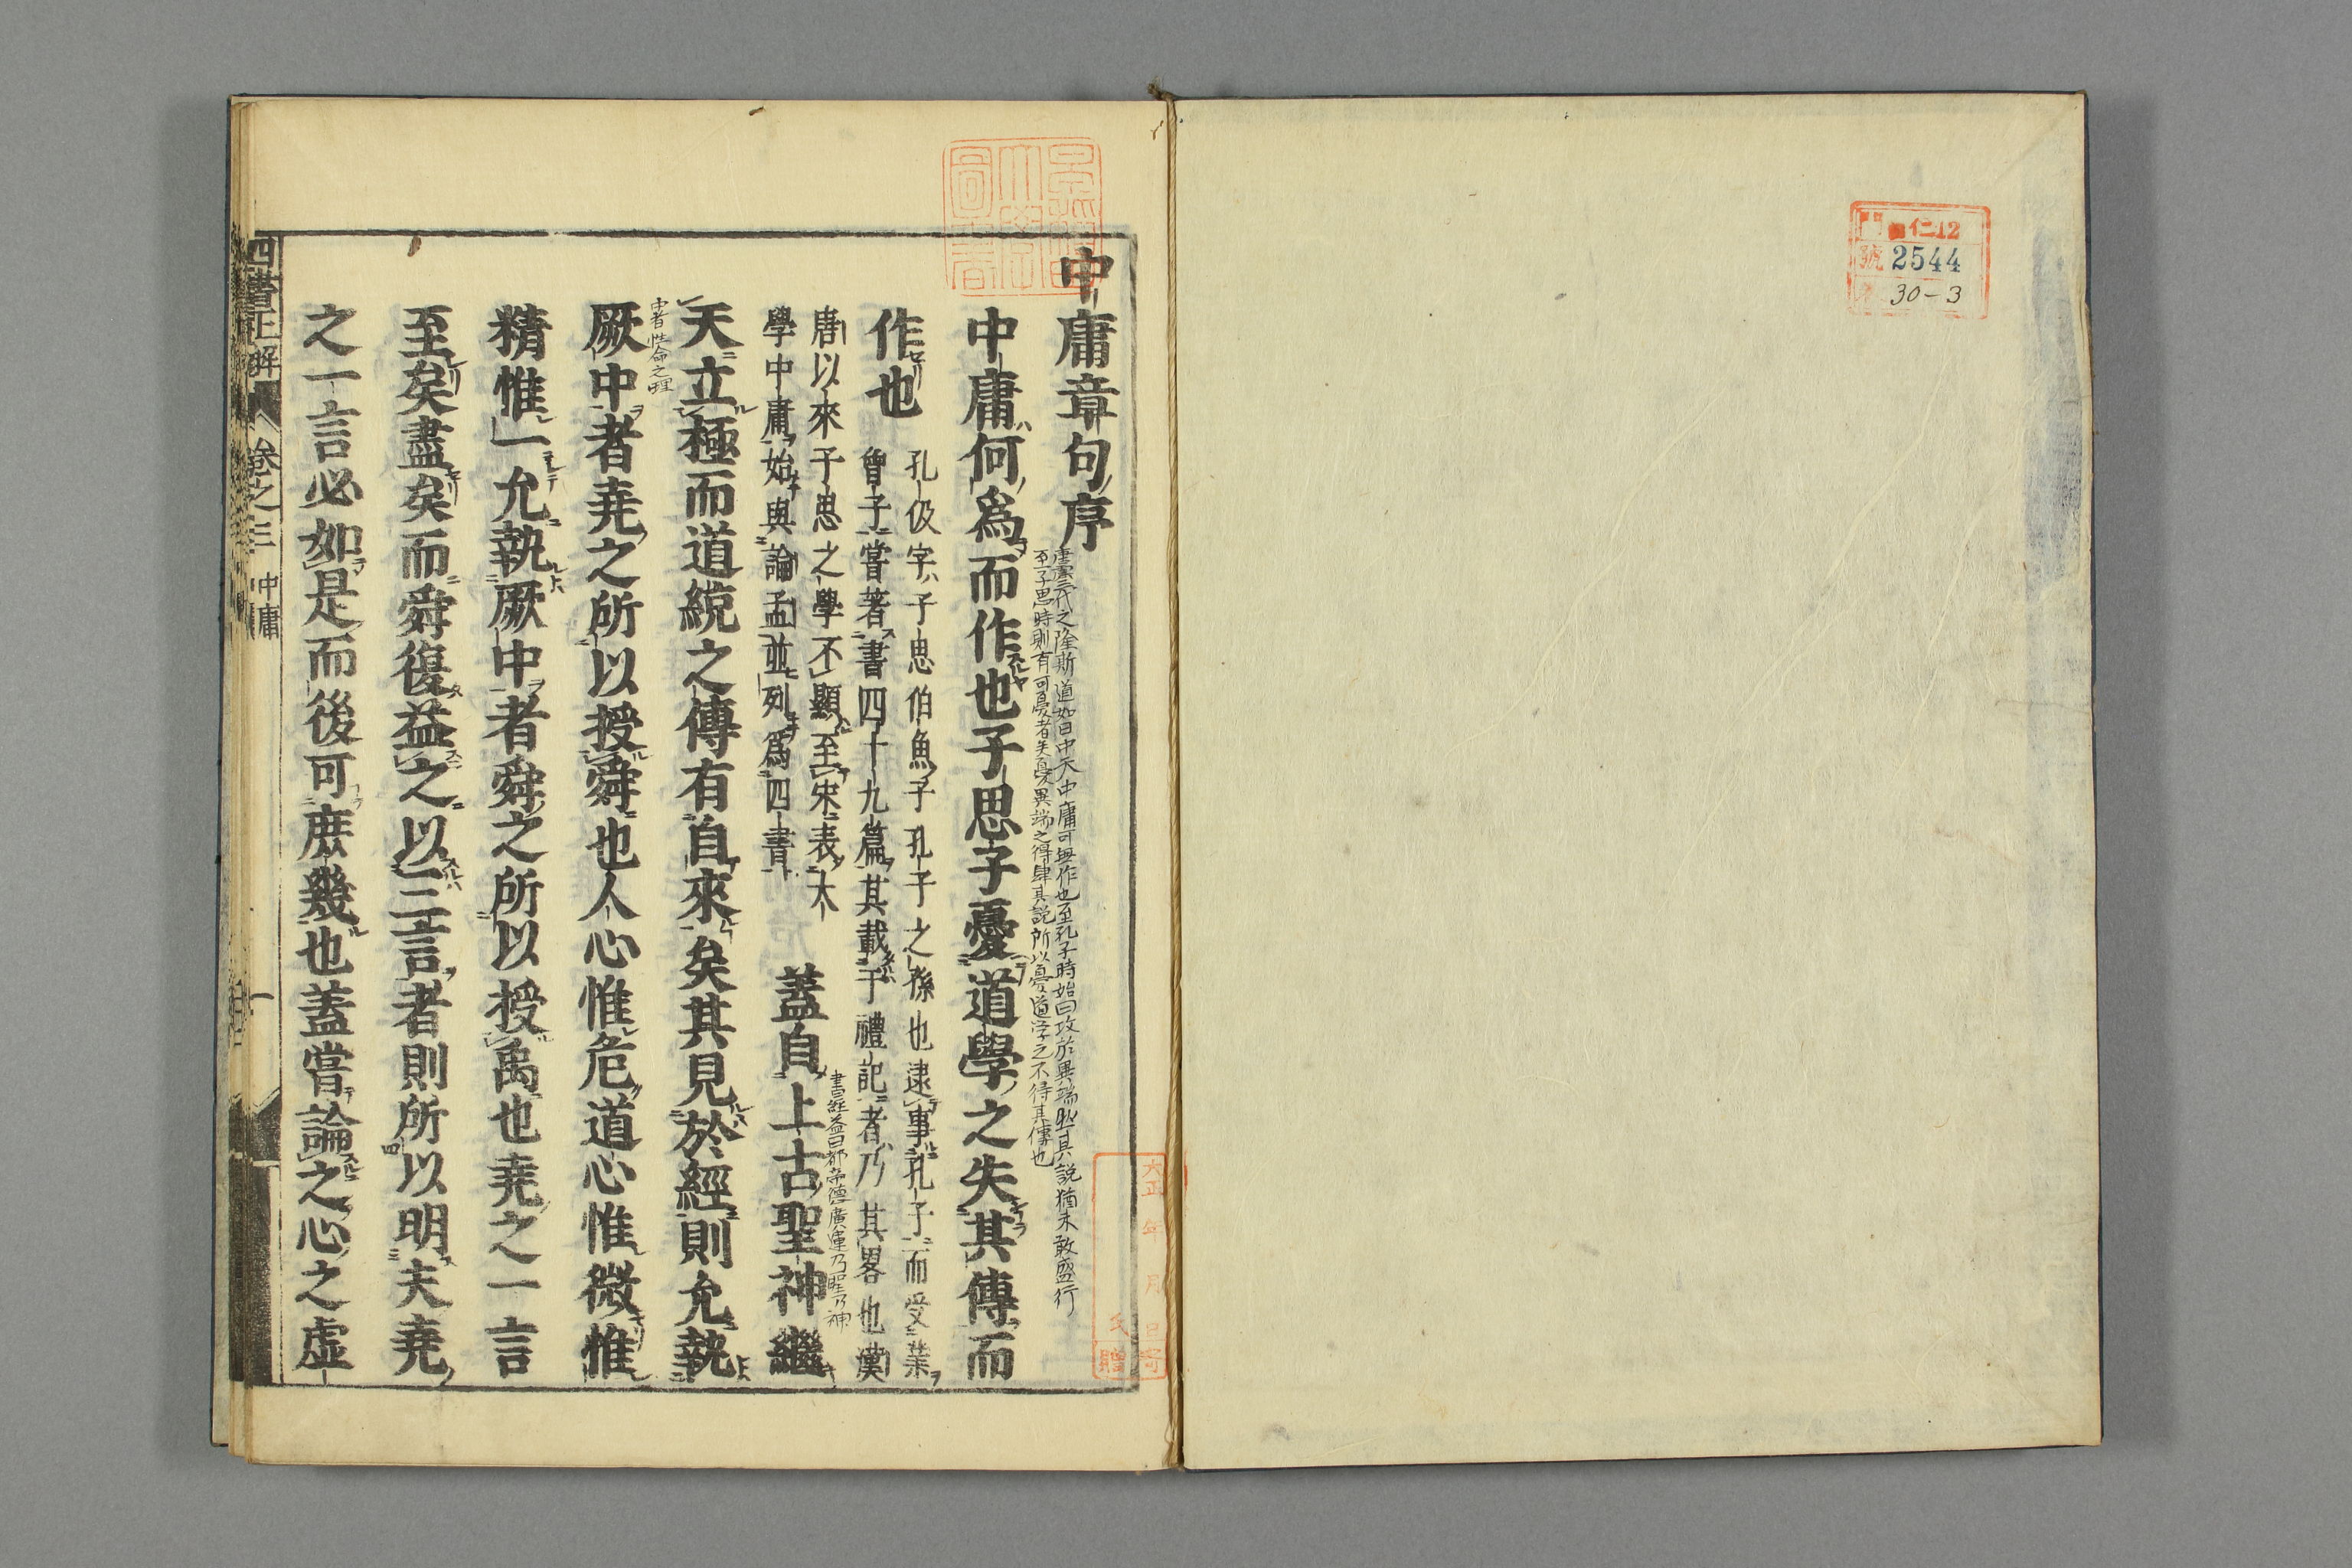 門 仁12
號 2544
30-3
中庸章句序
唐虞三代之隆斯道如日中天中庸可無作也至孔子時始曰攻於異端然其說猶未敢盛行
至子思時則有可憂者矣憂異端之得肆其說所以憂道学之不得其傳也
中庸何爲而作也子思子憂道學之失其傳而
作也
孔伋字子思伯魚子孔子之孫也逮事孔子而受業
曾子嘗著書四十九篇其載于禮記者乃其畧也漢
唐以來子思之學不顯至宋表大
學中庸始與論孟並列爲四書
蓋自上古聖神繼
書經益曰都帝德廣運乃聖乃神
天立極而道統之傳有自來矣其見於經則允執
中者性命之理
厥中者堯之所以授舜也人心惟危道心惟微惟
精惟一允執厥中者舜之所以授禹也堯之一言
至矣盡矣而舜復益之以三言者則所以明夫堯
之一言必如是而後可庶幾也蓋嘗論之心之虛
四書正解 卷之三 中庸 一
大正 年 月 日寄
氏 贈